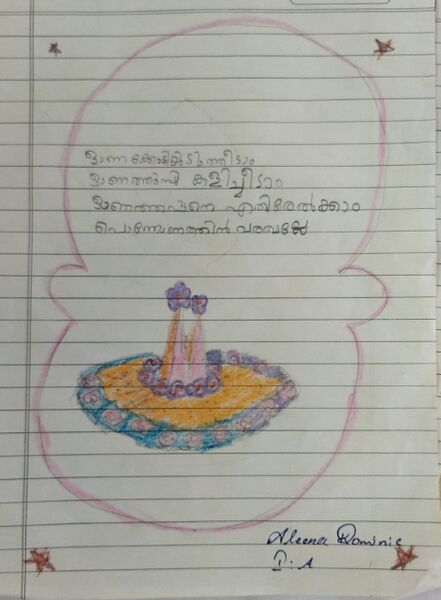 ഓണക്കോടിയുടുത്തീടാം
ഓണത്തുമ്പി കളിച്ചീടാം
ഓണത്തപ്പനെ എതിരേൽക്കാം
പൊന്നോണത്തിൻ വരവല്ലേ
Aleena Dominic
I:A